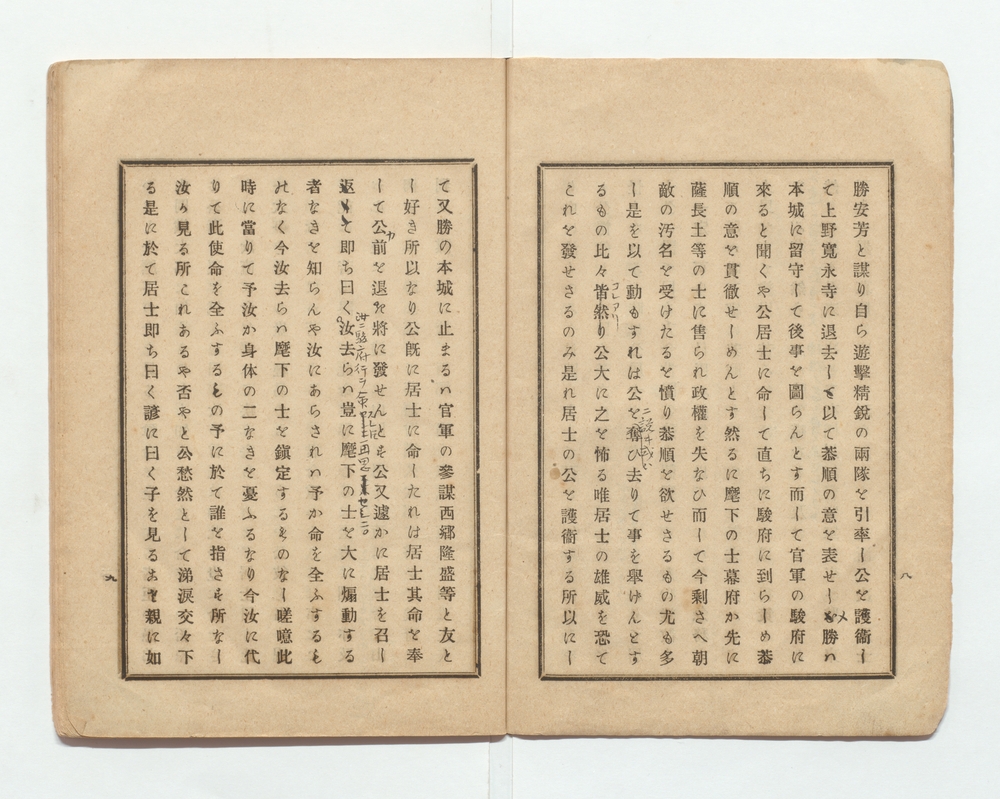 勝安芳と謀り自ら遊擊精銳の兩隊を引率し公を護衞し
て上野寬永寺に退去しを以て恭順の意を表せしむ勝ハ
メ
本城に留守して後事を圖らんとす而して官軍の駿府に
來ると聞くや公居士に命して直ちに駿府に到らしめ恭
順の意を貫徹せしめんとす然るに麾下の士幕府か先に
薩長土等の士に售られ政權を失なひ而して今剩さへ朝
敵の汚名を受けたるを憤り恭順を欲せさるもの尤も多
し是を以て動もすれは公を奪ひ去りて事を舉けんとす
るもの比々皆然り公大に之を怖る唯居士の雄威を恐て
コレアリ
これを發せさるのみ是れ居士の公を護衞する所以にし
八
て又勝の本城に止まるハ官軍の參謀西鄕隆盛等と友と
し好き所以なり公旣に居士に命したれは居士其命を奉
して公前を退き將に發せんとも公又遽かに居士を召し
返して卽ち曰く汝去らハ豈に麾下の士を大に煽動する
者なきを知らんや汝にあらされハ予か命を全ふするも
のなく今汝去らハ麾下の士を鎭定するものなし嗟噫此
時に當りて予汝か身体の二なきを憂ふるなり今汝に代
りて此使命を全ふするもの予に於て誰を指さむ所なし
汝の見る所これあるや否やと公愁然として涕淚交々下
る是に於て居士卽ち曰く諺に曰く子を見るまを親に如
九